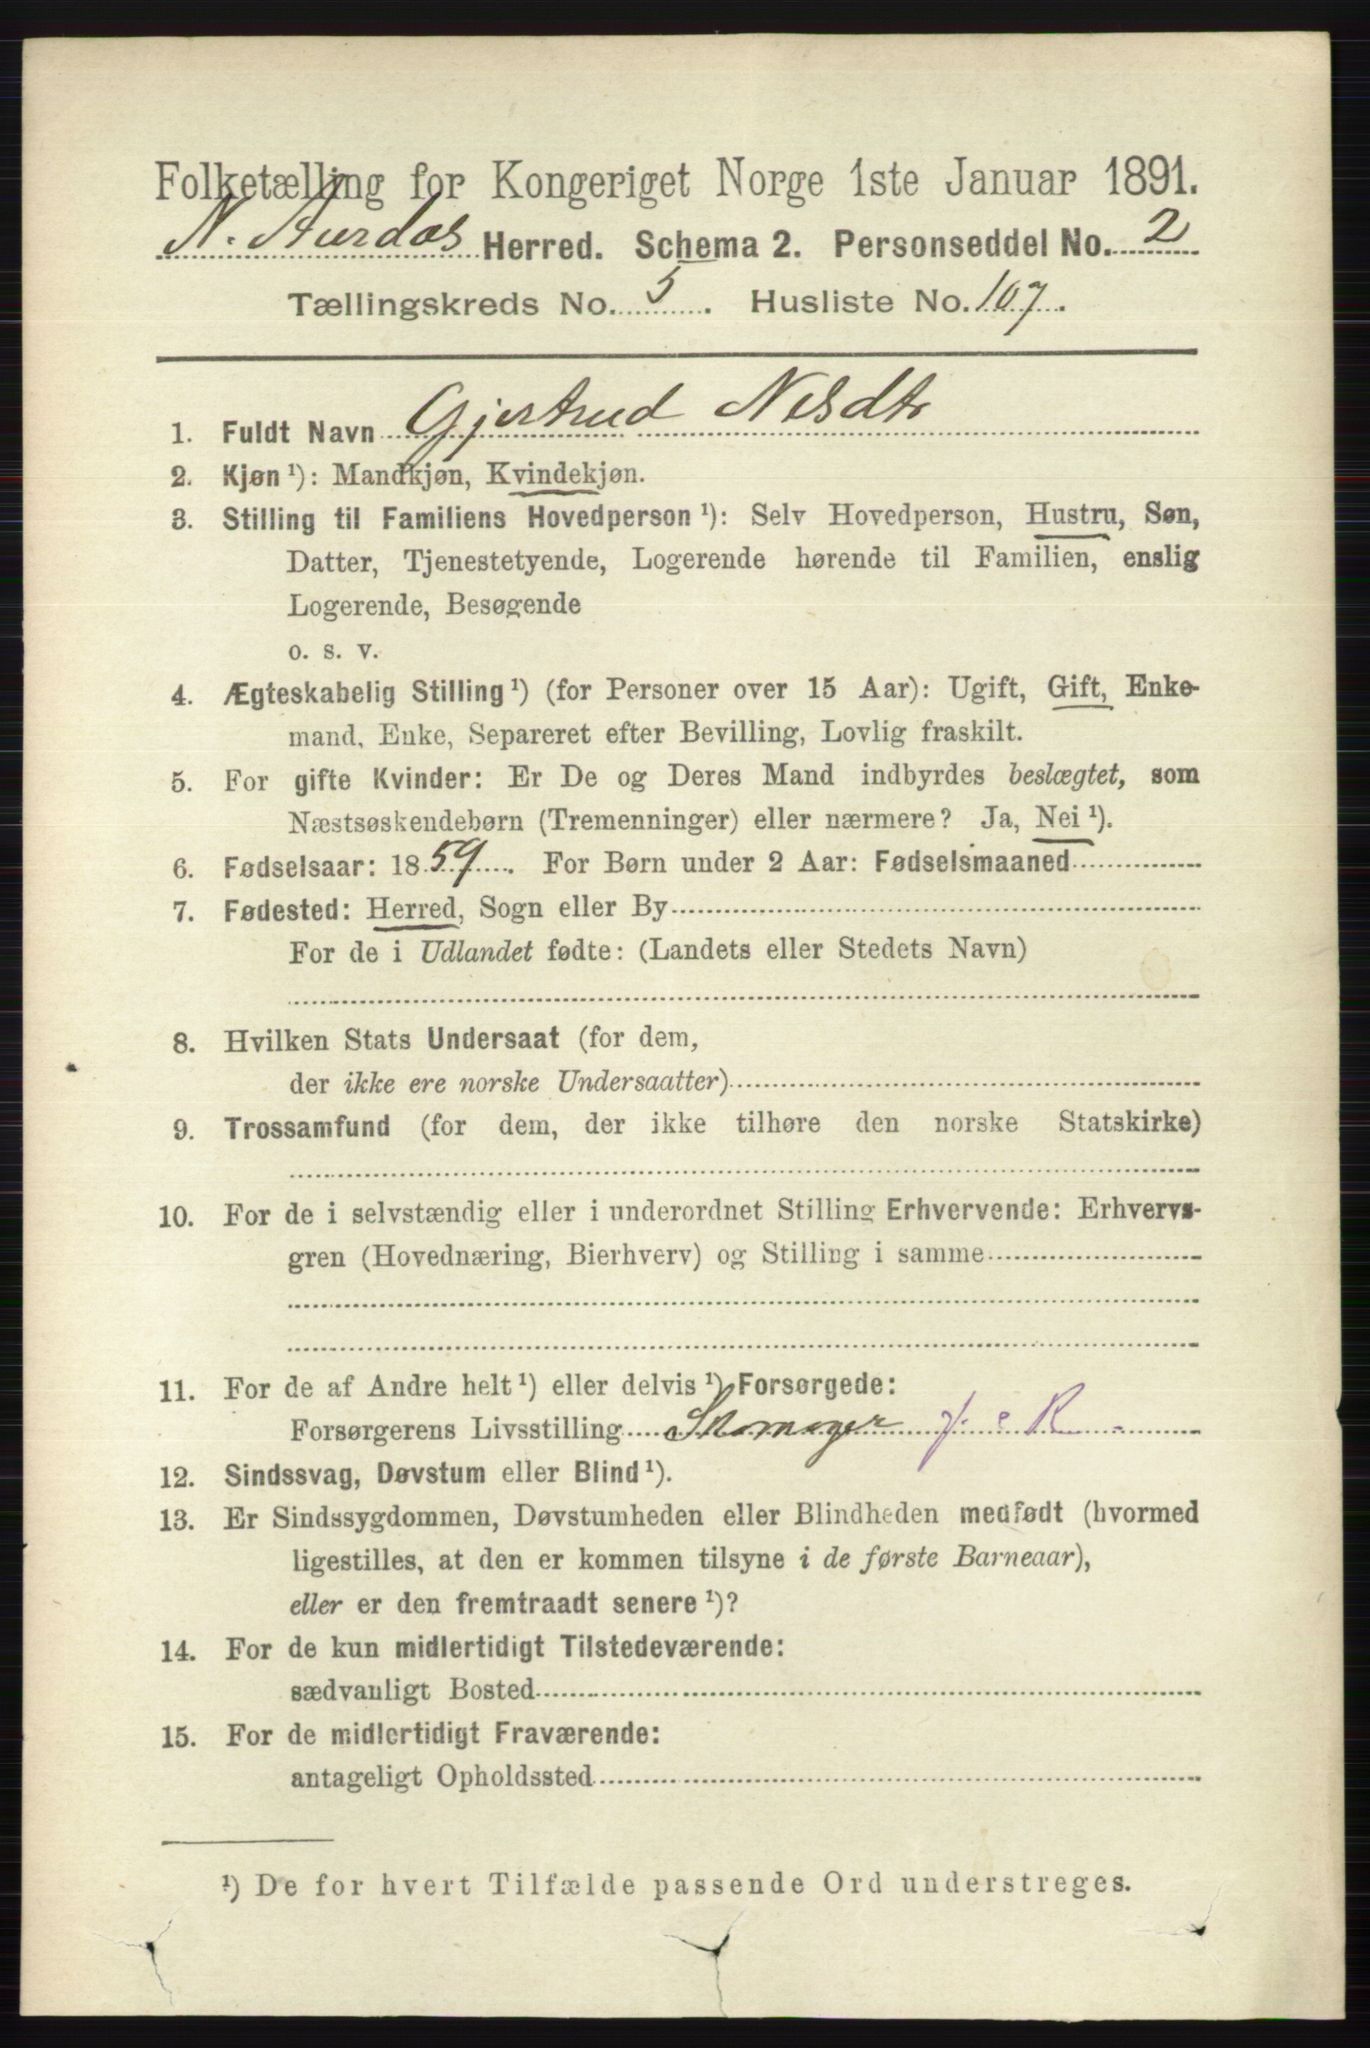 Folketælling for Kongeriget Norge 1ste Januar 1891.
N. Aurdal Herred. Schema 2. Personseddel No. 2
Tællingskreds No. 5. Husliste No. 107.
1. Fuldt Navn Gjertrud Nilsdtr
2. Kjøn ¹): Mandkjøn, Kvindekjøn.
3. Stilling til Familiens Hovedperson ¹): Selv Hovedperson, Hustru, Søn,
Datter, Tjenestetyende, Logerende hørende til Familien, enslig
Logerende, Besøgende
o. s. v.
4. Ægteskabelig Stilling ¹) (for Personer over 15 Aar): Ugift, Gift, Enke-
mand, Enke, Separeret efter Bevilling, Lovlig fraskilt.
5. For gifte Kvinder: Er De og Deres Mand indbyrdes beslægtet, som
Næstsøskendebørn (Tremenninger) eller nærmere? Ja, Nei ¹).
6. Fødselsaar: 1859. For Børn under 2 Aar: Fødselsmaaned
7. Fødested: Herred, Sogn eller By
For de i Udlandet fødte: (Landets eller Stedets Navn)
8. Hvilken Stats Undersaat (for dem,
der ikke ere norske Undersaatter)
9. Trossamfund (for dem, der ikke tilhøre den norske Statskirke)
10. For de i selvstændig eller i underordnet Stilling Erhvervende: Erhvervs-
gren (Hovednæring, Bierhverv) og Stilling i samme
11. For de af Andre helt ¹) eller delvis ¹) Forsørgede:
Forsørgerens Livsstilling Skomager
12. Sindssvag, Døvstum eller Blind ¹).
13. Er Sindssygdommen, Døvstumheden eller Blindheden medfødt (hvormed
ligestilles, at den er kommen tilsyne i de første Barneaar),
eller er den fremtraadt senere ¹)?
14. For de kun midlertidigt Tilstedeværende:
sædvanligt Bosted
15. For de midlertidigt Fraværende:
antageligt Opholdssted
¹) De for hvert Tilfælde passende Ord understreges.